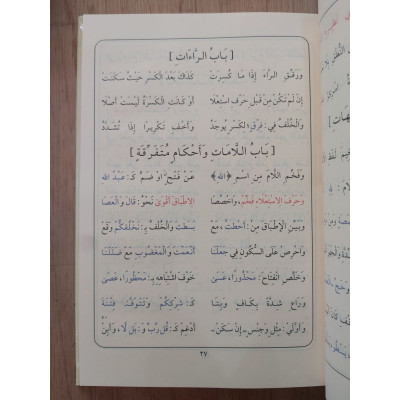 [ بَابُ الرَّاءَاتِ ]
وَرَقِّقِ الرَّاءَ إِذَا مَا كُسِرَتْ كَذَاكَ بَعْدَ الْكَسْرِ حَيْثُ سَكَنَتْ
إِنْ لَمْ تَكُنْ مِنْ قَبْلِ حَرْفِ اسْتِعْلَا أَوْ كَانَتِ الْكَسْرَةُ لَيْسَتْ أَصْلَا
وَالْخُلْفُ فِي: فِرْقٍ؛ لِكَسْرٍ يُوجَدُ وَأَخْفِ تَكْرِيرًا إِذَا تُشَدَّدُ
[ بَابُ اللَّامَاتِ وَأَحْكَامٍ مُتَفَرِّقَةٍ ]
وَفَخِّمِ اللَّامَ مِنِ اسْمِ ﴿اللهِ﴾ عَنْ فَتْحٍ اوْ ضَمٍّ كَـ: عَبْدُ اللهِ
وَحَرْفَ الِاسْتِعْلَاءِ فَخِّمْ، وَاخْصُصَا الِاطْبَاقَ أَقْوَى نَحْوُ: قَالَ وَالْعَصَا
وَبَيِّنِ الْإِطْبَاقَ مِنْ: أَحَطْتُ، مَعْ بَسَطْتَ وَالْخُلْفُ بِـ: نَخْلُقْكُمْ وَقَعْ
وَاحْرِصْ عَلَى السُّكُونِ فِي جَعَلْنَا أَنْعَمْتَ وَالْمَغْضُوبِ مَعْ ضَلَلْنَا
وَخَلِّصِ انْفِتَاحَ: مَحْذُورًا، عَسَى خَوْفَ اشْتِبَاهِهِ بِـ: مَحْظُورًا، عَصَى
وَرَاعِ شِدَّةً بِكَافٍ وَبِتَا كَـ: شِرْكِكُمْ وَتَتَوَفَّى فِتْنَةَ
وَأَوَّلَيْ: مِثْلٍ وَجِنْسٍ - إِنْ سَكَنْ - أَدْغِمْ كَـ: قُل رَّبِّ وَ: بَل لَّا، وَأَبِنْ
٢٧